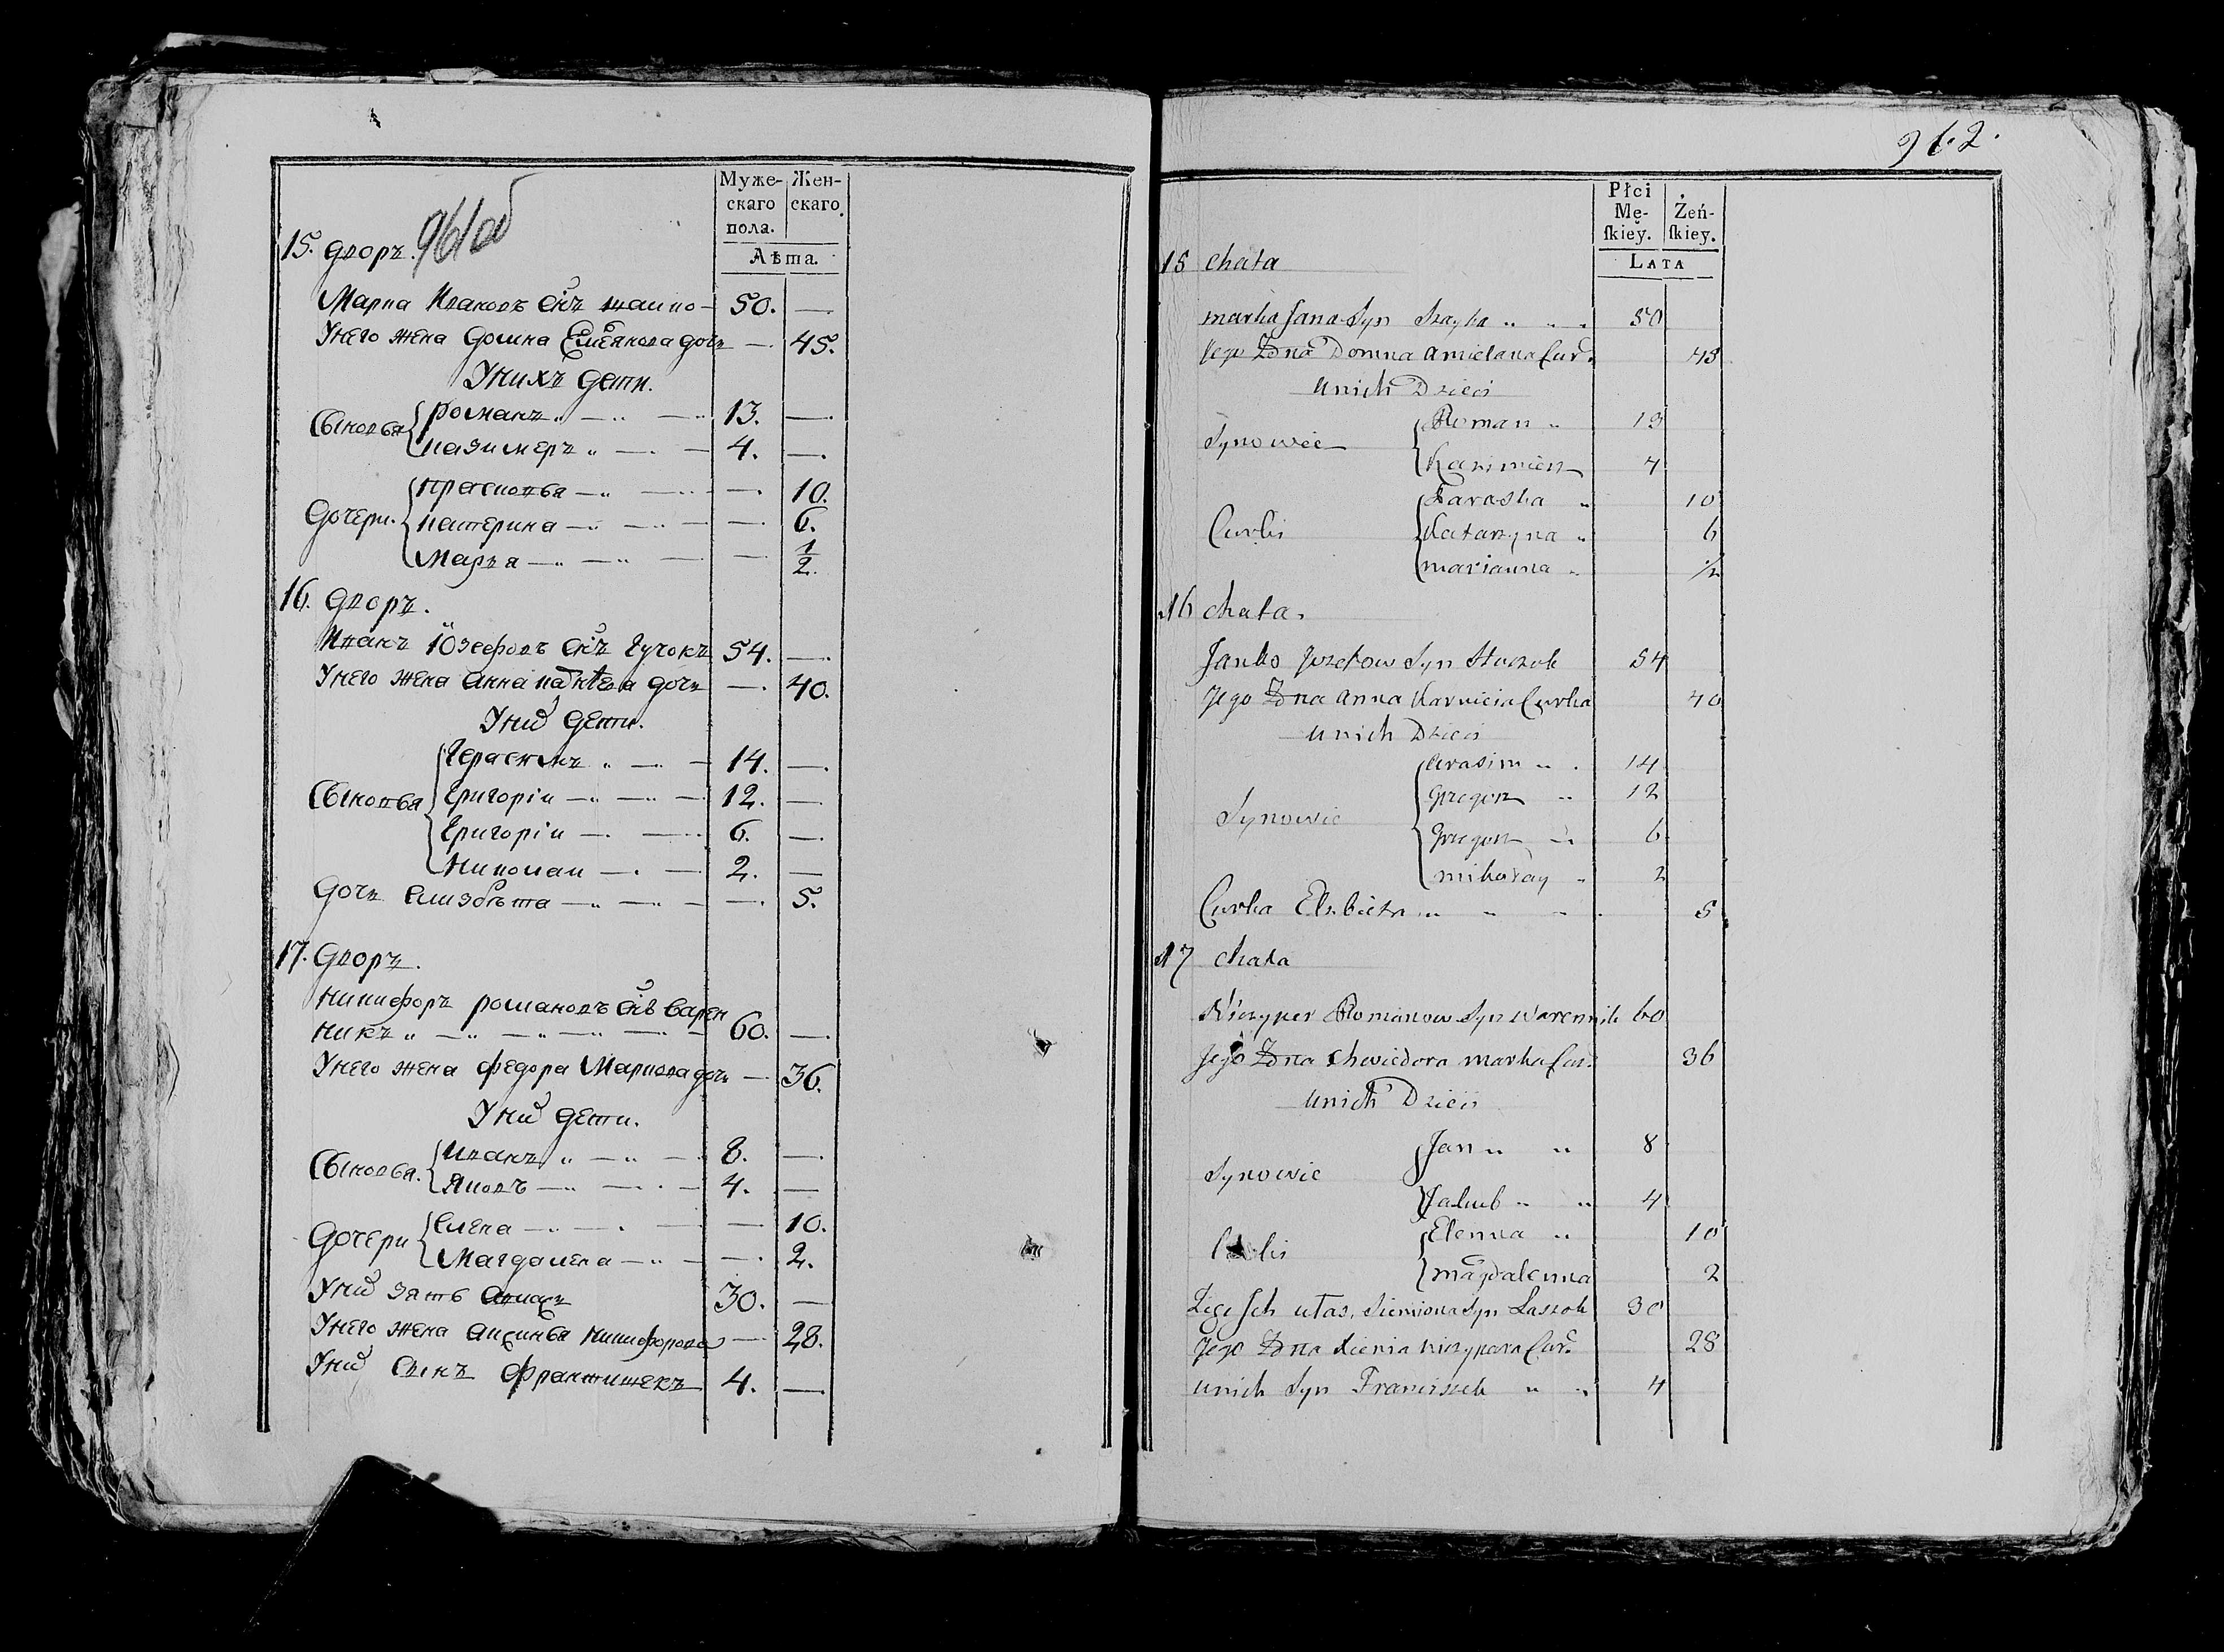 961об
Муже-
скаго
пола.
Жен-
скаго.
Лѣта.
15. дворъ.
Марка Ивановъ снъ шаика — 50. —
У него жена Домна Емелянова дочь — 45.
У нихъ дети.
Сыновья
Романъ 13. —
Казимеръ 4. —
Дочери.
Прасковья — 10.
Катерина — 6.
Марья — 1/2.
16. дворъ.
Иванъ Юзефовъ снъ 54. —
У него жена Анна дочь — 40.
У них дети.
Сыновья
Герасимъ 14. —
Григоріи 12. —
Григоріи 6. —
Николаи 2. —
Дочь Елизбѣта — 5.
17. Дворъ.
Никифоръ Романовъ снъ Варен
никъ 60. —
У него жена Федора Маркова дочь — 36.
У них дети.
Сыновья.
Иванъ 8. —
Яковъ 4. —
Дочери
Елена — 10.
Магдалена — 2.
У них зять 30. —
У него жена Аксинья Никифорова — 28.
У них сынъ Франтишекъ 4. —
962.
Płci
Mę-
skiey.
Żeń-
skiey.
LATA
15 chata
marka Jana Syn Szayka 50
Jego Żona Domna amielana Cur. 45
unich Dzieci
Synowie
Roman 13
Kazimierz 4
Curki
Paraska 10
Katarzyna 6
marianna 1/2
16 chata.
Janko Jozefow Syn 54
Jego Żona anna Curka 40
unich Dzieci
Synowie
Arasim 14
Grzegorz 12
Grzegorz 6
mikołay 2
Curka Elzbieta 5
17 chata
Niczyper Romanow Syn Warennik 60
Jego Żona Chwiedora marka Cur. 36
unich Dzieci
Synowie
Jan 8
Jakub 4
Curki
Elenna 10
magdalenna 2
Siemiona Syn Laszok 30
Jego Żona Xienia niczypara Cur. 28
unich Syn Franciszek 4